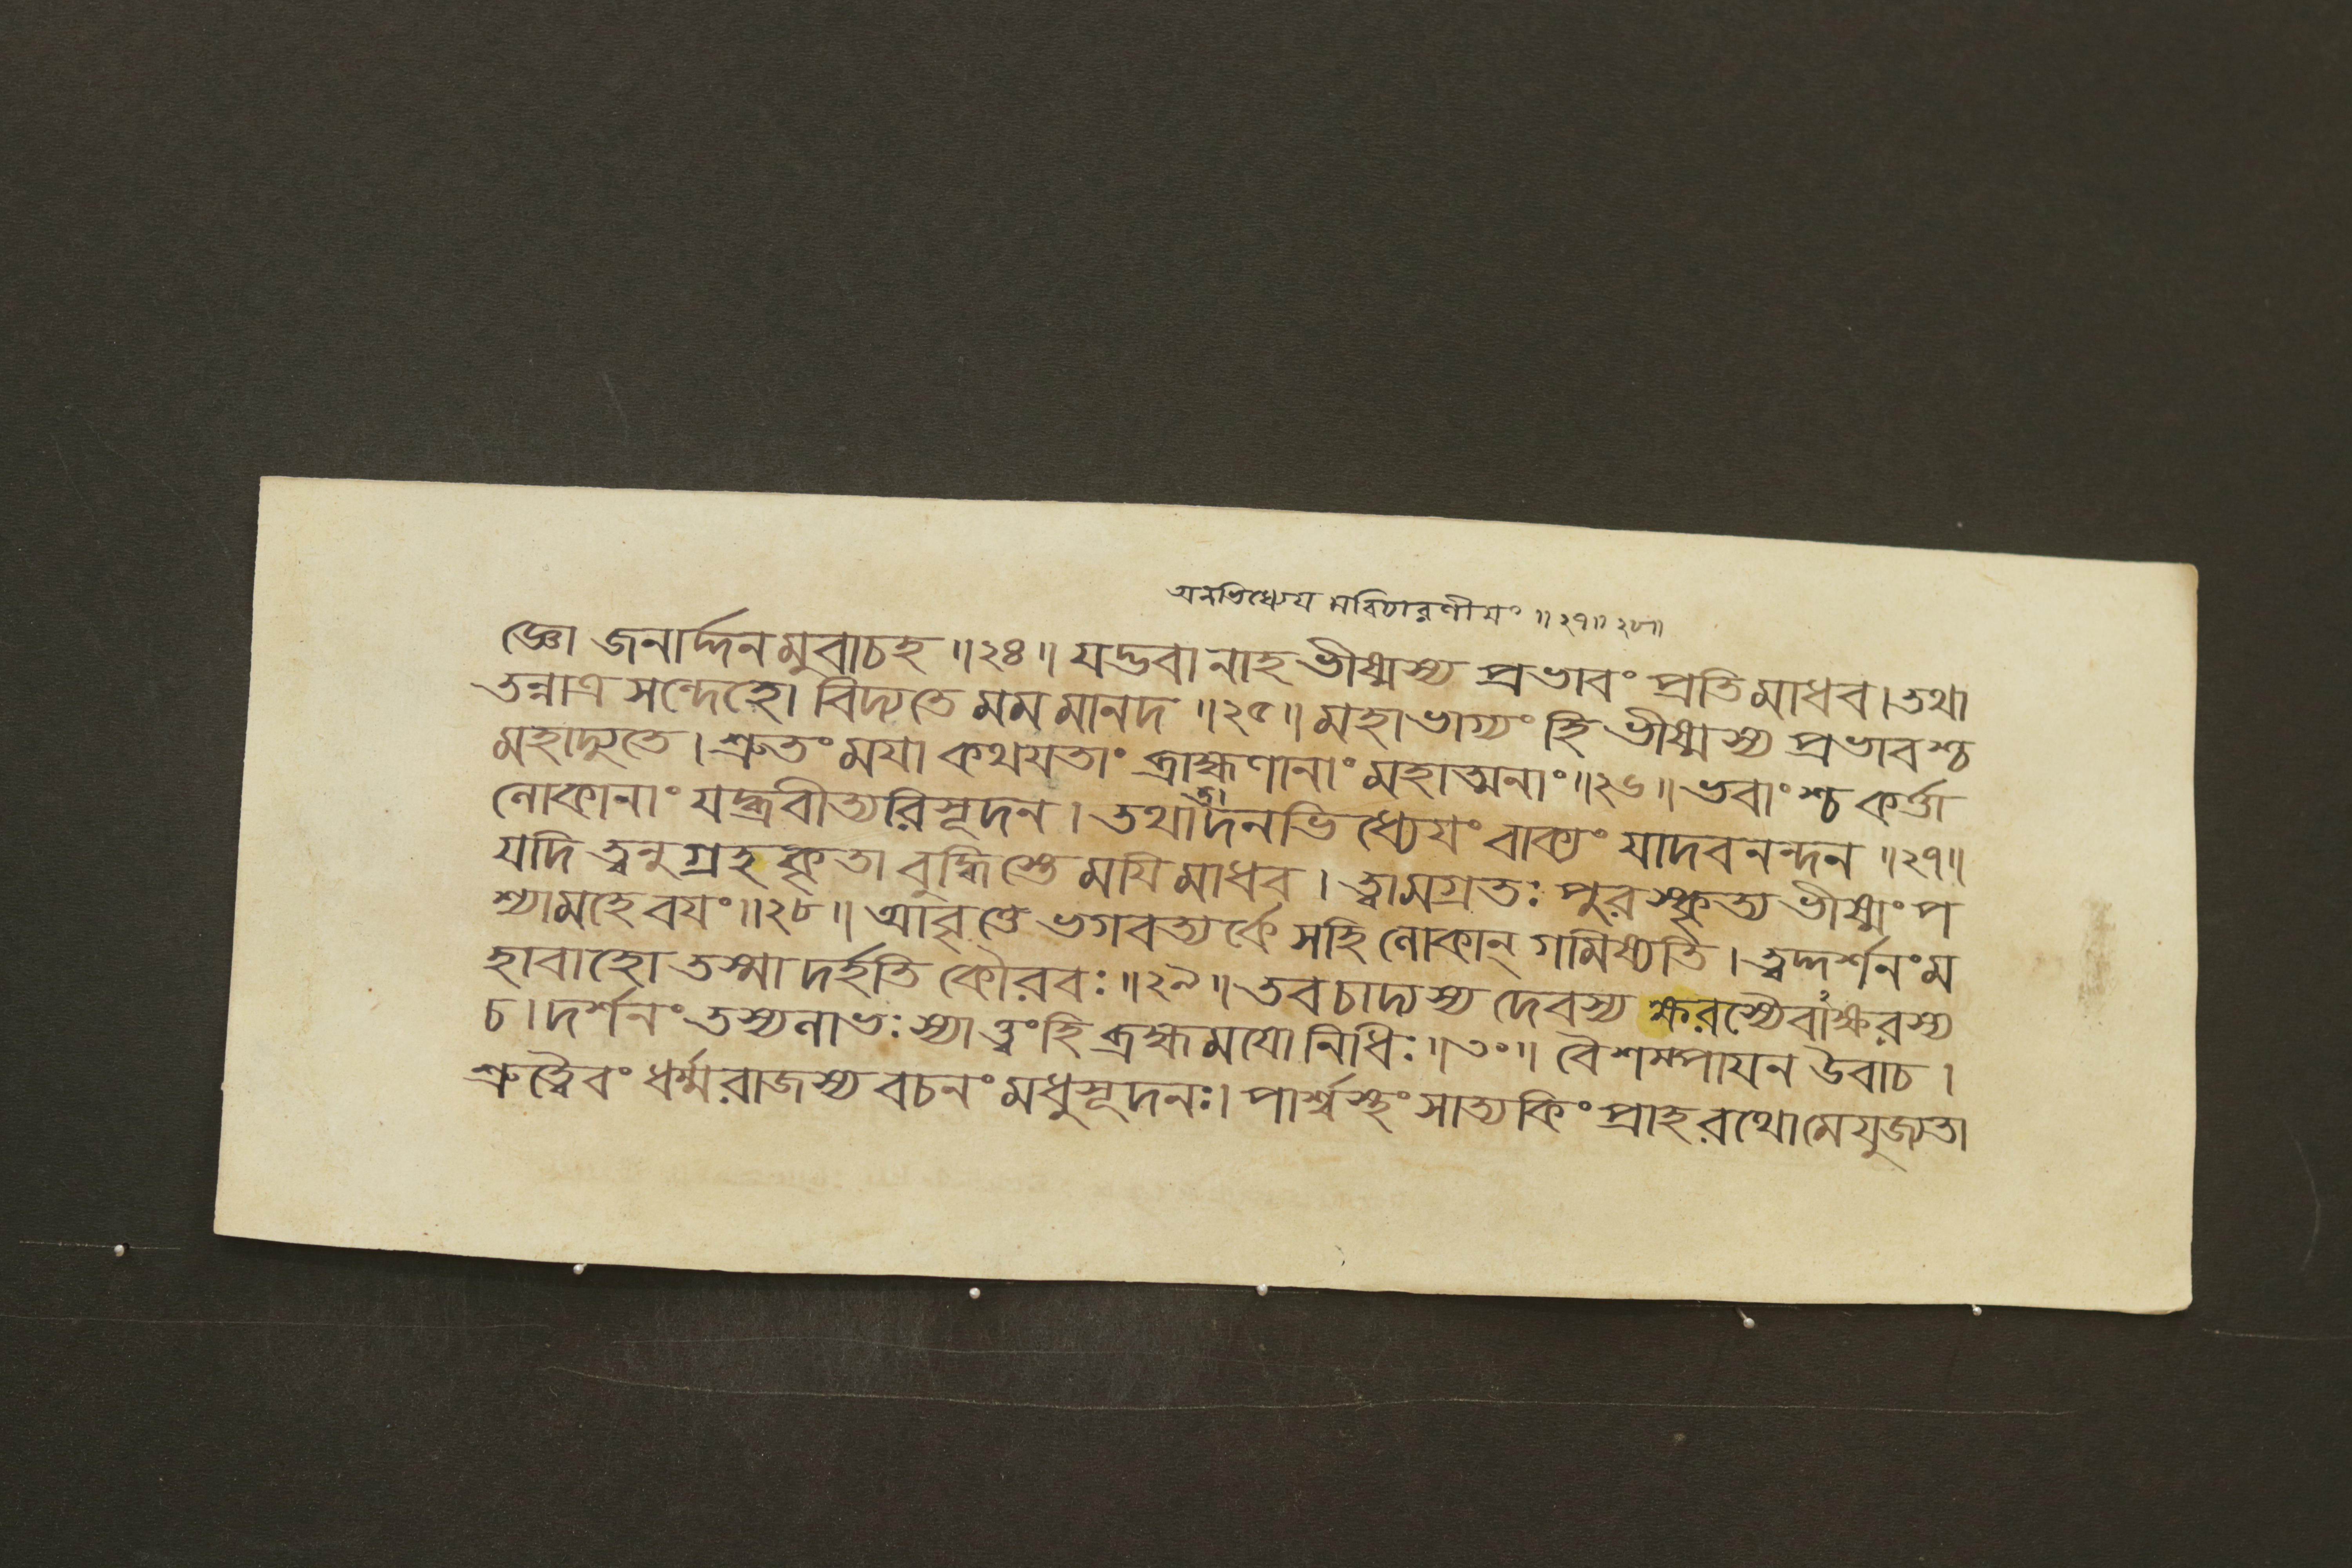 অনভিধ্যেয়মবিচারণীয়ং ॥২৭॥২৮॥
জ্ঞো জনার্দ্দনমুবাচহ ॥২৪॥ যদ্ভবানাহ ভীষ্মস্য প্রভাবং প্রতি মাধব। তথা
তন্নাত্র সন্দেহো বিদ্যতে মম মানদ ॥২৫॥ মহাভাগ্যং হি ভীষ্মস্য প্রভাবশ্চ
মহাদ্যুতে। শ্রুতং ময়া কথয়তাং ব্রাহ্মণানাং মহাত্মনাং ॥২৬॥ ভবাংশ্চ কর্ত্তা
লোকানাং যদ্ব্রবীত্যরিসূদন। তথা দনভিধ্যেয়ং বাক্যং যাদবনন্দন ॥২৭॥
যদি ত্বনুগ্রহকৃতা বুদ্ধিস্তে ময়ি মাধব। ত্বামগ্রতঃ পুরস্কৃত্য ভীষ্মং প
শ্যামহে বয়ং ॥২৮॥ আবৃত্তে ভগবত্যর্কে সহি লোকান্ গমিষ্যতি। ত্বদ্দর্শনং ম
হাবাহো তস্মাদর্হতি কৌরবঃ ॥২৯॥ তবচাদ্যস্য দেবস্য ক্ষরস্যৈবাক্ষরস্য
চ। দর্শনং তস্যলাভঃ স্যাত্ত্বংহি ব্রহ্মময়ো নিধিঃ ॥৩০॥ বৈশম্পায়ন উবাচ।
শ্রুত্বৈবং ধর্ম্মরাজস্য বচনং মধুসূদনঃ। পার্শ্বস্থং সাত্যকিং প্রাহ রথোমেযুজ্যতা